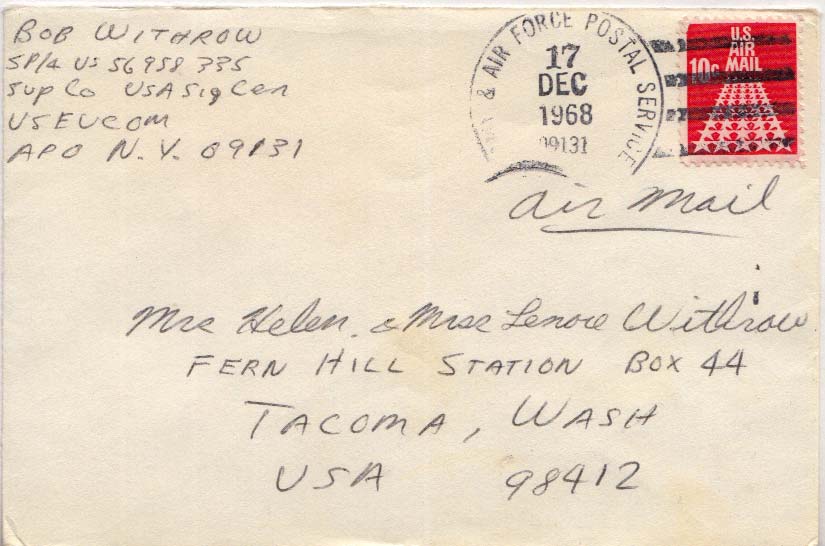 BOB WITHROW
SP/4 US 56958335
Sup Co USA Sig Cen
USEUCOM
APO N.Y. 09131
& AIR FORCE POSTAL SERVICE
17
DEC
1968
09131
U.S.
AIR
MAIL
10c
Air Mail
Mrs Helen & Miss Lenore Withrow
FERN HILL STATION BOX 44
TACOMA, WASH
USA 98412